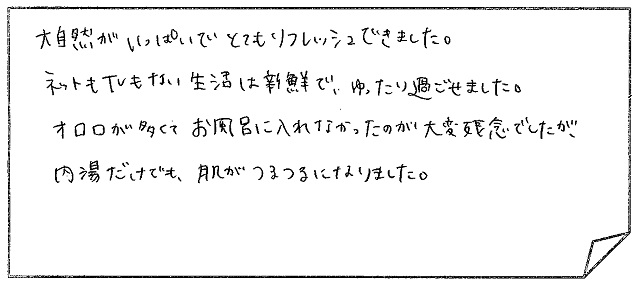 大自然がいっぱいでとてもリフレッシュできました。
ネットもTVもない生活は新鮮で、ゆったり過ごせました。
オロロが多くてお風呂に入れなかったのが大変残念でしたが、
内湯だけでも、肌がつるつるになりました。